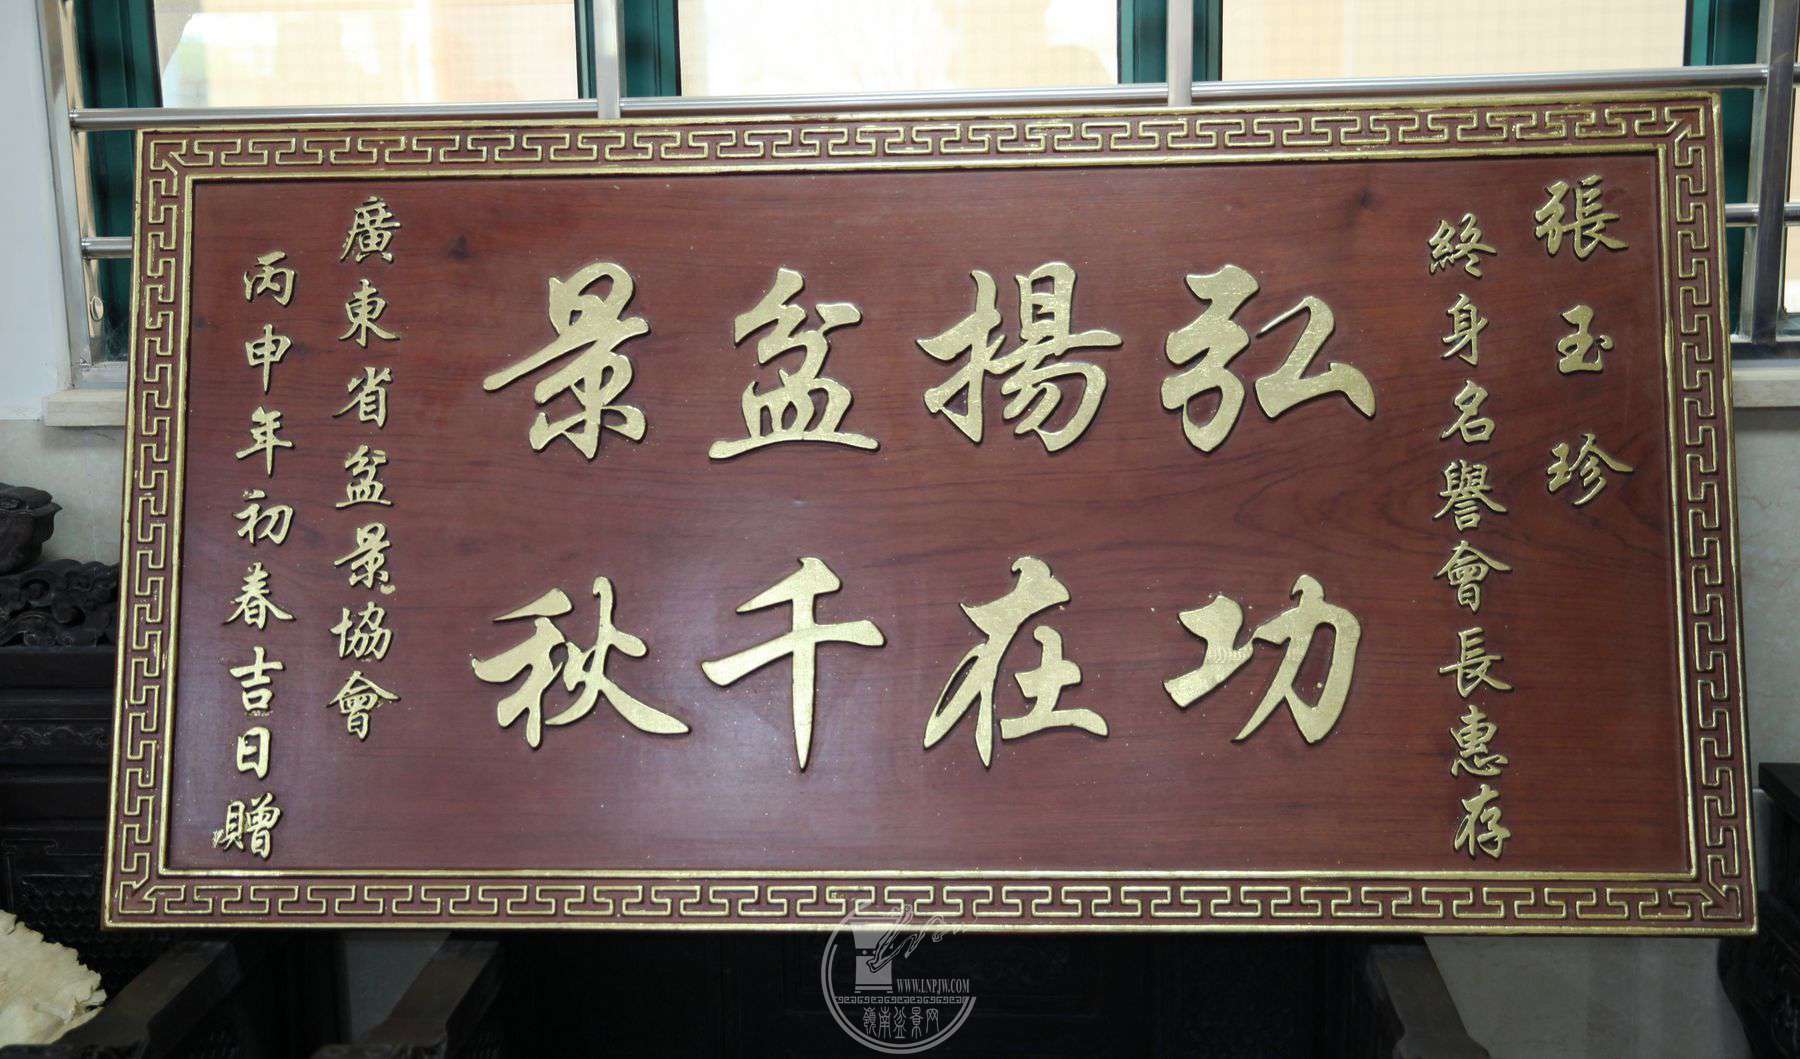 張玉珍
終身名譽會長惠存
弘揚盆景
功在千秋
廣東省盆景協會
丙申年初春吉日贈
WWW.LNPJW.COM
嶺南盆景网